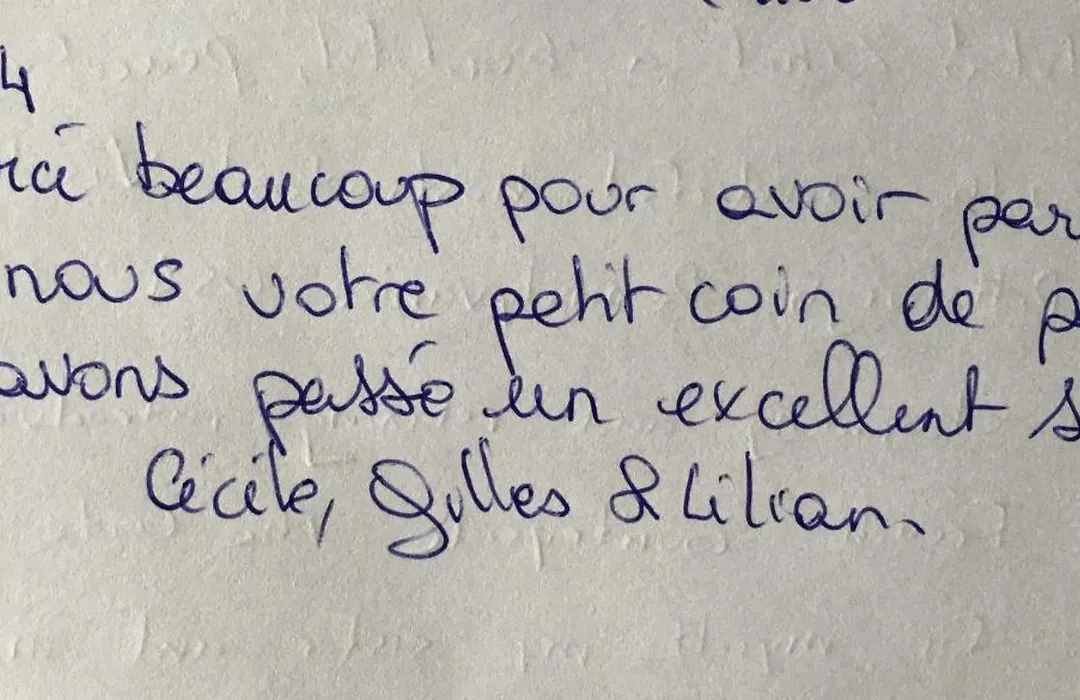 4
beaucoup pour avoir par
nous votre petit coin de p
avons passé un excellent s
Cécile, Gilles & Lilian.